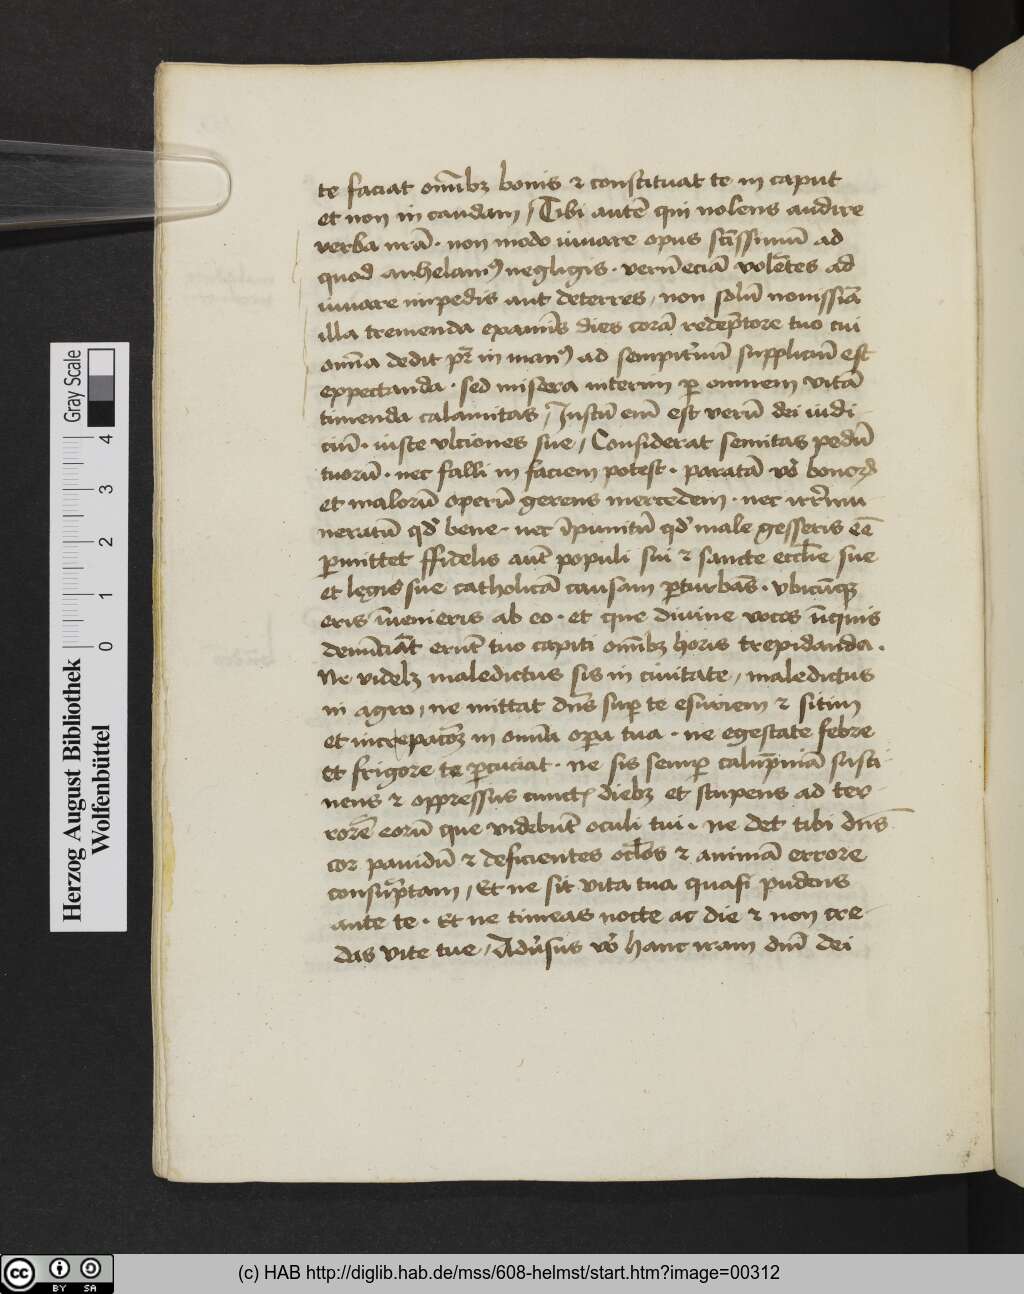 te faciat om̄ibꝫ bonis ⁊ constituat te in caput
et non in caudam / Tibi autē qui nolens audire
verba nr̄a · non modo iuuare opus sc̄issimū ad
quod anhelamꝰ negligis · verū eciā volētes ad
iuuare impedis aut deterres, non solū nouissīa
illa tremenda examīs dies corā redēptore tuo cui
om̄ia dedit pr̄ in manꝰ ad sempit'nū suppliciū est
expectanda · sed misera interim ꝑ omnem vitā
timenda calamitas / Justū em̄ est verū dei iudi
ciū · iuste vlciones sue / Considerat semitas pedū
tuorū · nec falli in faciem potest · paratā vo᷒ bonoꝝ
et malorū operū gerens mercedem · nec irr'mu
neratū qd̓ bene · nec īpunitū qd̓ male gesseris eē
ꝑmittet ffidelis aut̄ populi sui ⁊ sancte eccl̄ie sue
et legis sue catholicā causam ꝑturbās · vbicūqꝫ
eris īuenieris ab eo · et que diuine voces iniquis
denūciāt erūt tuo capiti om̄ibꝫ horis trepidanda ·
Ne videlꝫ maledictus sis in ciuitate, maledictus
in agro, ne mittat dn̄s suꝑ te esuriem ⁊ sitim
et increpacōꝫ in om̄ia oꝑa tua · ne egestate febre
et frigore te ꝑcuciat · ne sis semꝑ calūpniā susti
nens ⁊ oppressus cunct᷒ diebꝫ et stupens ad ter
rorē eorū que videbūt oculi tui · ne det tibi dn̄s
cor pauidū ⁊ deficientes ocl̄os ⁊ animā errore
consūptam / Et ne sit vita tua quasi pudens
ante te · Et ne timeas nocte ac die ⁊ non cre
das vite tue / Adu'sus vo᷒ hanc iram dn̄i dei
Herzog August Bibliothek
Wolfenbüttel
0 1 2 3 4
Gray Scale
cc BY SA
(c) HAB http://diglib.hab.de/mss/608-helmst/start.htm?image=00312